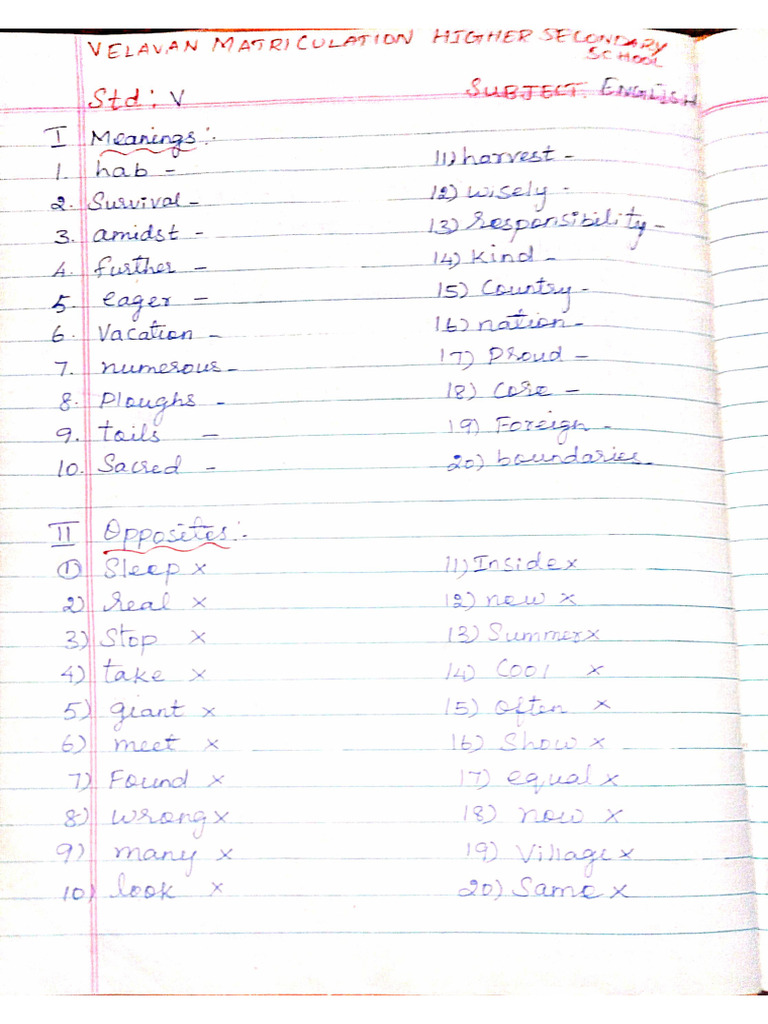 VELAVAN MATRICULATION HIGHER SECONDARY SCHOOL
Std: V SUBJECT: ENGLISH
I Meanings:-
1. hab - 11) harvest -
2. Survival - 12) wisely -
3. amidst - 13) responsibility -
4. further - 14) kind -
5. eager - 15) Country -
6. Vacation - 16) nation -
7. numerous - 17) Proud -
8. Ploughs - 18) Care -
9. toils - 19) Foreign -
10. Sacred - 20) boundaries -
II Opposites:-
1) Sleep x 11) Inside x
2) real x 12) new x
3) Stop x 13) Summer x
4) take x 14) Cool x
5) giant x 15) Often x
6) meet x 16) Show x
7) Found x 17) equal x
8) wrong x 18) now x
9) many x 19) Village x
10) look x 20) Same x